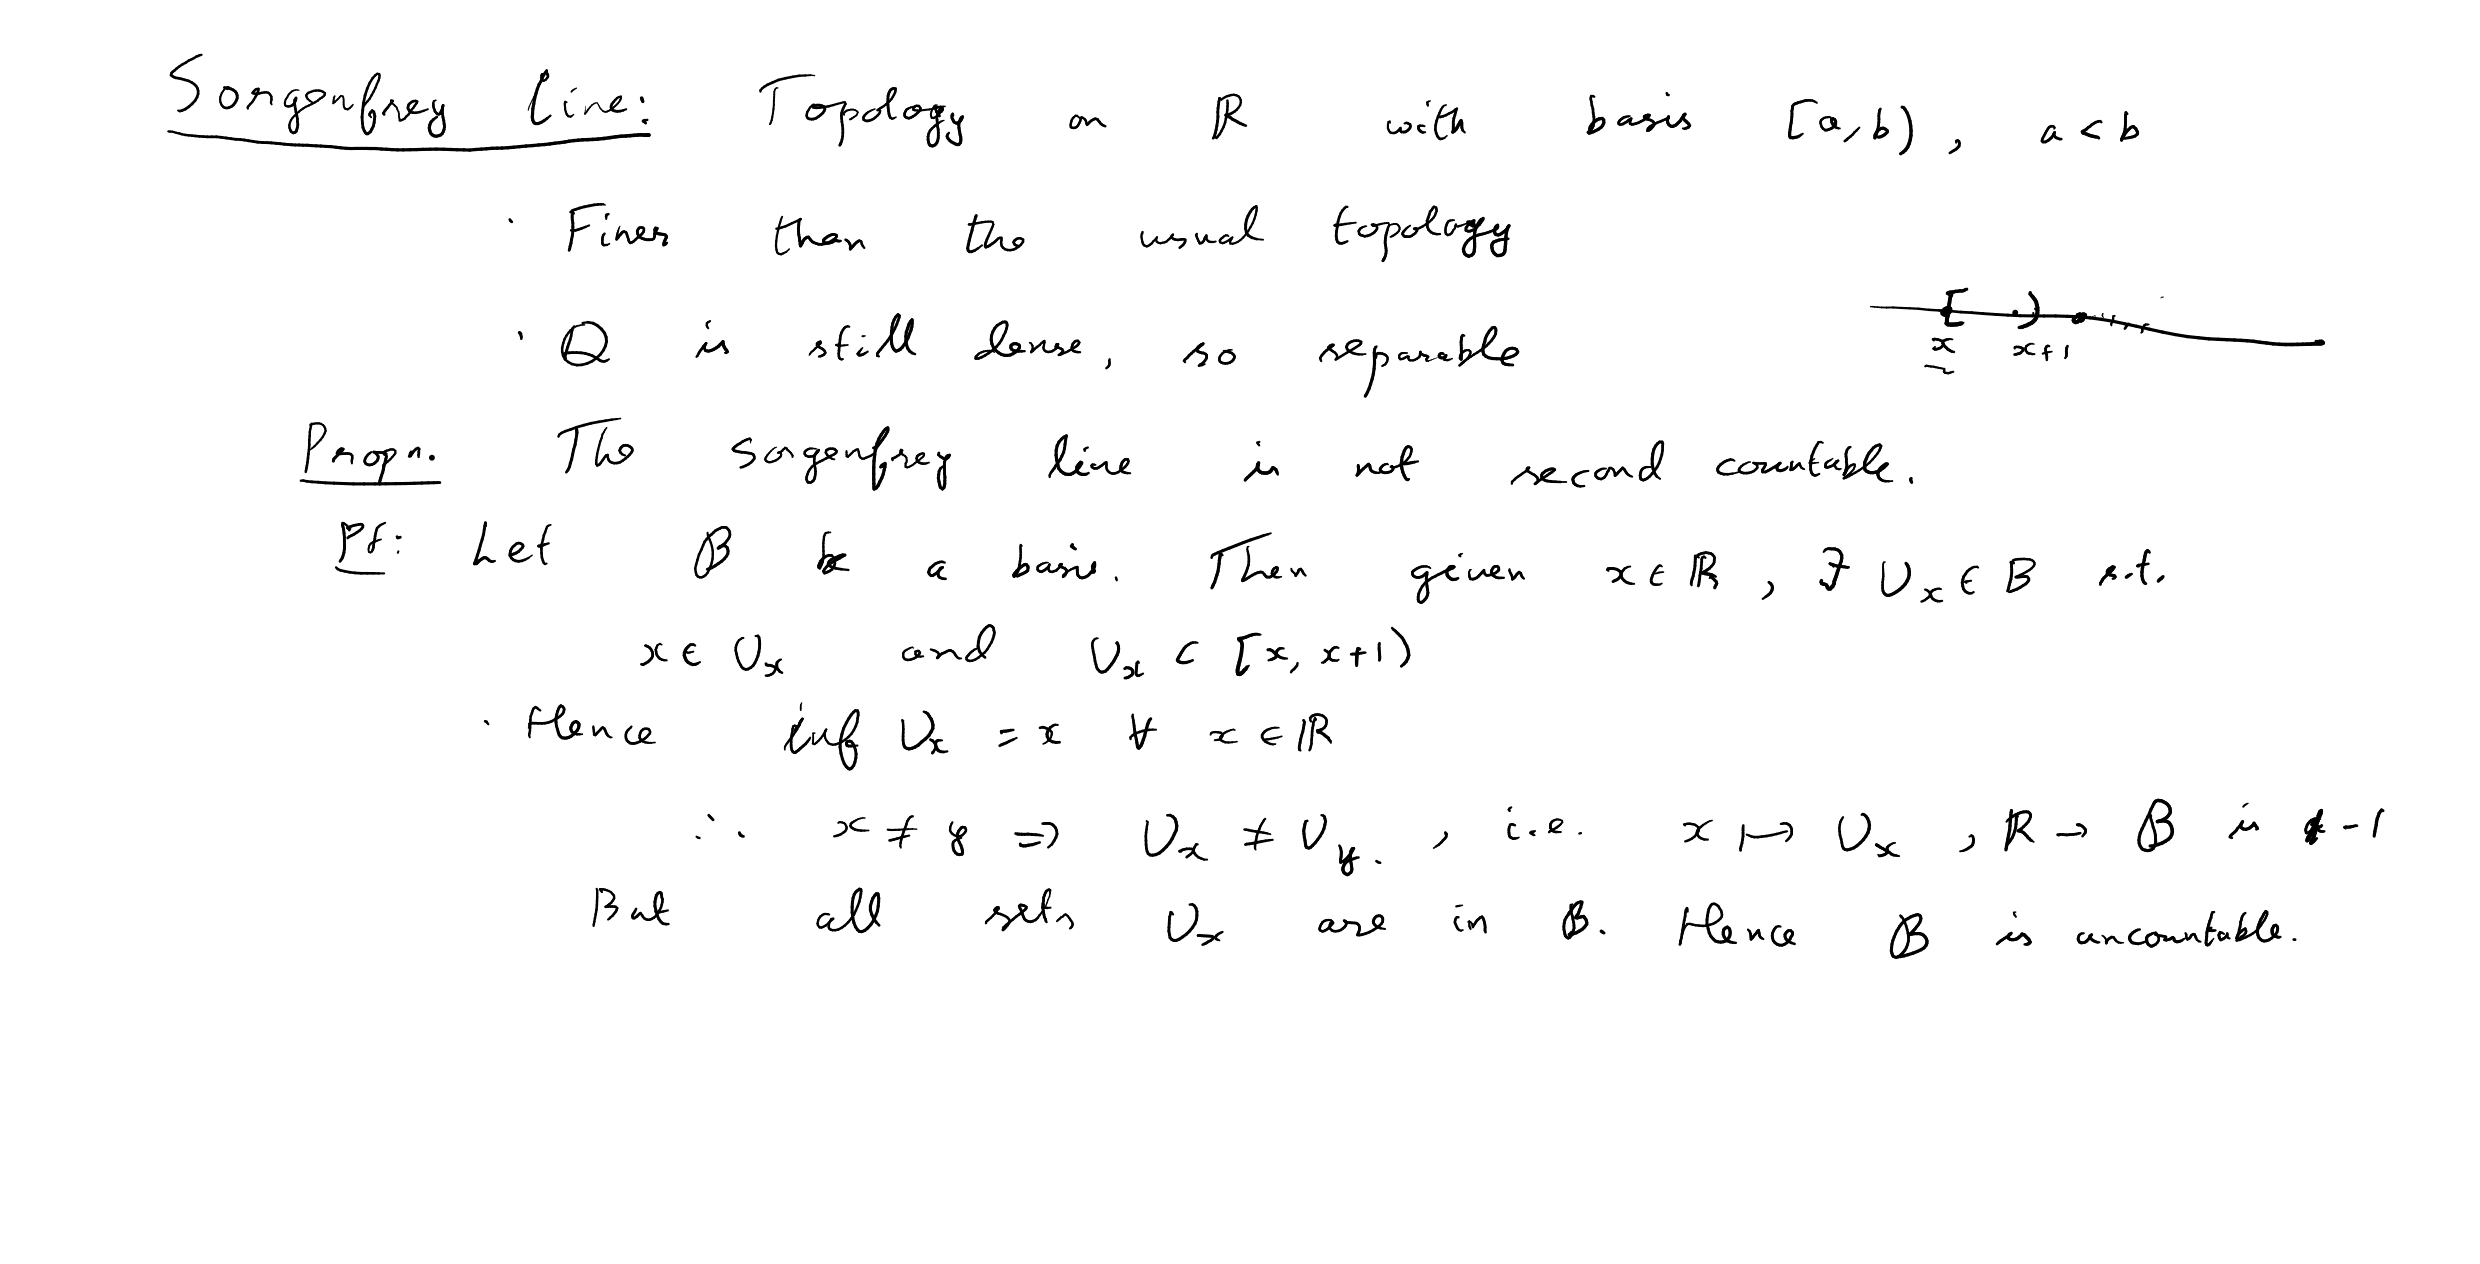 Sorgenfrey line: Topology on ℝ with basis [a,b), a<b
· Finer than the usual topology
· Q is still dense, so separable
[ ) x x+1
Propn. The Sorgenfrey line is not second countable.
Pf: Let B be a basis. Then given x ∈ ℝ, ∃ U_x ∈ B s.t.
x ∈ U_x and U_x ⊂ [x, x+1)
· Hence inf U_x = x ∀ x ∈ ℝ
∴ x ≠ y ⇒ U_x ≠ U_y. , i.e. x ↦ U_x , ℝ → B is 1-1
But all sets U_x are in B. Hence B is uncountable.